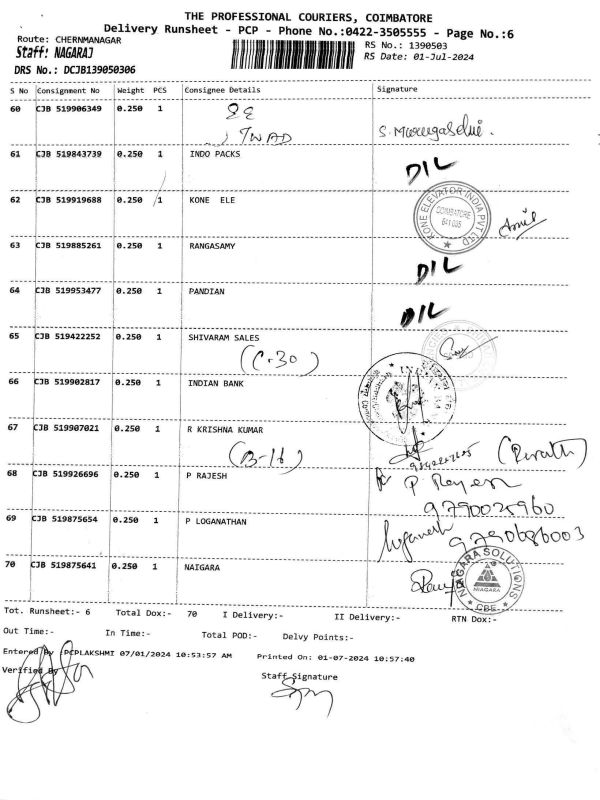 THE PROFESSIONAL COURIERS, COIMBATORE
Delivery Runsheet - PCP - Phone No.:0422-3505555 - Page No.:6
Route: CHERNMANAGAR
RS No.: 1390503
Staff: NAGARAJ
RS Date: 01-Jul-2024
DRS No.: DCJB139050306
S No Consignment No Weight PCS Consignee Details Signature
60 CJB 519906349 0.250 1
TWAD
61 CJB 519843739 0.250 1 INDO PACKS DIL
62 CJB 519919688 0.250 1 KONE ELE
KONE ELEVATOR INDIA PVT LTD
COIMBATORE
641 035
63 CJB 519885261 0.250 1 RANGASAMY DIL
64 CJB 519953477 0.250 1 PANDIAN DIL
65 CJB 519422252 0.250 1 SHIVARAM SALES
(C-30)
66 CJB 519902817 0.250 1 INDIAN BANK
67 CJB 519907021 0.250 1 R KRISHNA KUMAR
(B-16)
68 CJB 519926696 0.250 1 P RAJESH P Rajesh
9790025960
69 CJB 519875654 0.250 1 P LOGANATHAN
9790686003
70 CJB 519875641 0.250 1 NAIGARA
NIAGARA SOLUTIONS
NIAGARA
CBE
Tot. Runsheet:- 6 Total Dox:- 70 I Delivery:- II Delivery:- RTN Dox:-
Out Time:- In Time:- Total POD:- Delvy Points:-
Entered By :PCPLAKSHMI 07/01/2024 10:53:57 AM Printed On: 01-07-2024 10:57:40
Verified By
Staff Signature